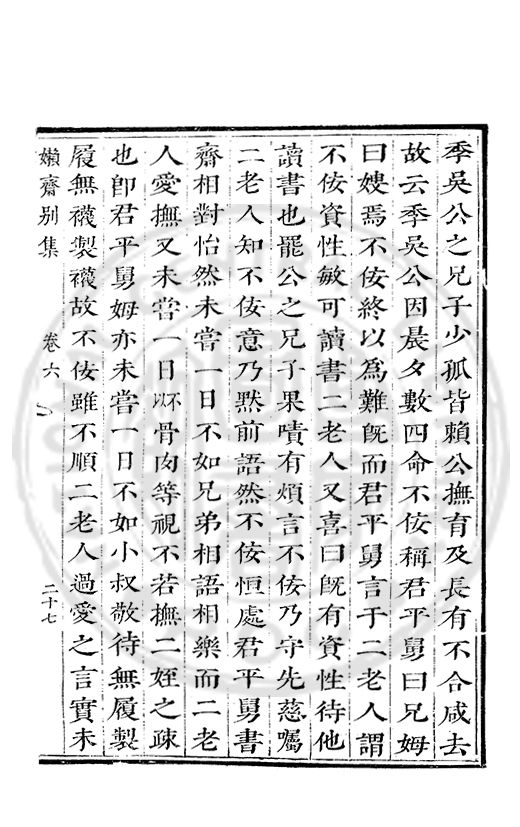 季吳公之兄子少孤皆賴公撫育及長有不合咸去
故云季吳公因晨夕數四命不佞稱君平舅曰兄姆
曰嫂焉不佞終以為難旣而君平舅言于二老人謂
不佞資性敏可讀書二老人又喜曰旣有資性待他
讀書也罷公之兄子果嘖有煩言不佞乃守先慈囑
二老人知不佞意乃默前語然不佞恒處君平舅書
齋相對怡然未嘗一日不如兄弟相語相樂而二老
人愛撫又未嘗一日不以骨肉等視不若撫二姪之疎
也卽君平舅姆亦未嘗一日不如小叔敬待無履製
履無襪製襪故不佞雖不順二老人過愛之言實未
嬾齋别集
卷六
二十七